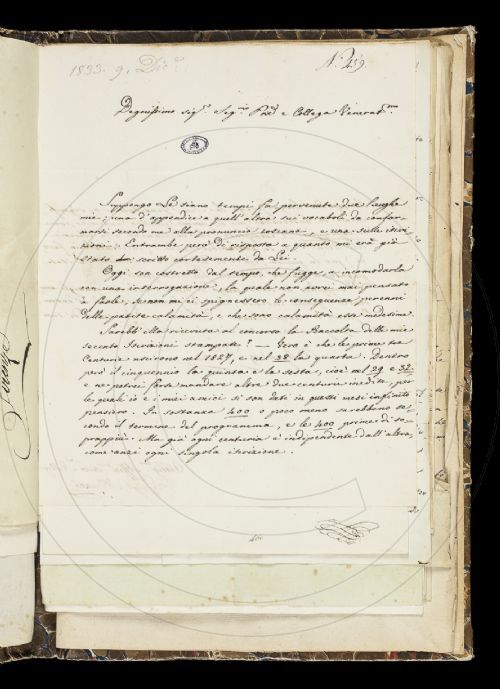 1833. 9. Dic.e
N.° 459.
Degnissimo Sig.r Seg.rio Pne.l e Collega Venerat.mo
Suppongo Le siano tempi fa pervenute due lunghe
mie; una d'appendice a quell'altra sui vocaboli da confor-
marsi secondo me alla pronuncia toscana, e una sulle iscri-
zioni. Entrambe però di risposta a quanto mi era già
stato scritto cortesemente da Lei.
Oggi son costretto dal tempo, che fugge, a incomodarla
con una interrogazione, la quale non avrei mai pensato
a farle, se non mi ci spignessero le conseguenze perenni
delle patite calamità, e che sono calamità esse medesime.
Sarebb'ella ricevuta al concorso la Raccolta delle mie
secento Iscrizioni stampate? — Vero è che le prime tre
Centurie uscirono nel 1827, e nel 28 la quarta. Dentro
però il cinquennio la quinta e la sesta, cioè nel 29 e 32:
e ne potrei forse mandare altre due centurie inedite, per
le quali io e i miei amici si son dati in questi mesi infinito
pensiero. In sostanza 400 o poco meno sarebbono se-
condo il termine del programma, e le 400 prime di so-
prappiù. Ma già ogni centuria è indipendente dall'altra,
come anzi ogni singola iscrizione.